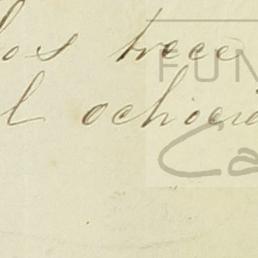 los trece
l ochocie
FUN
Ca